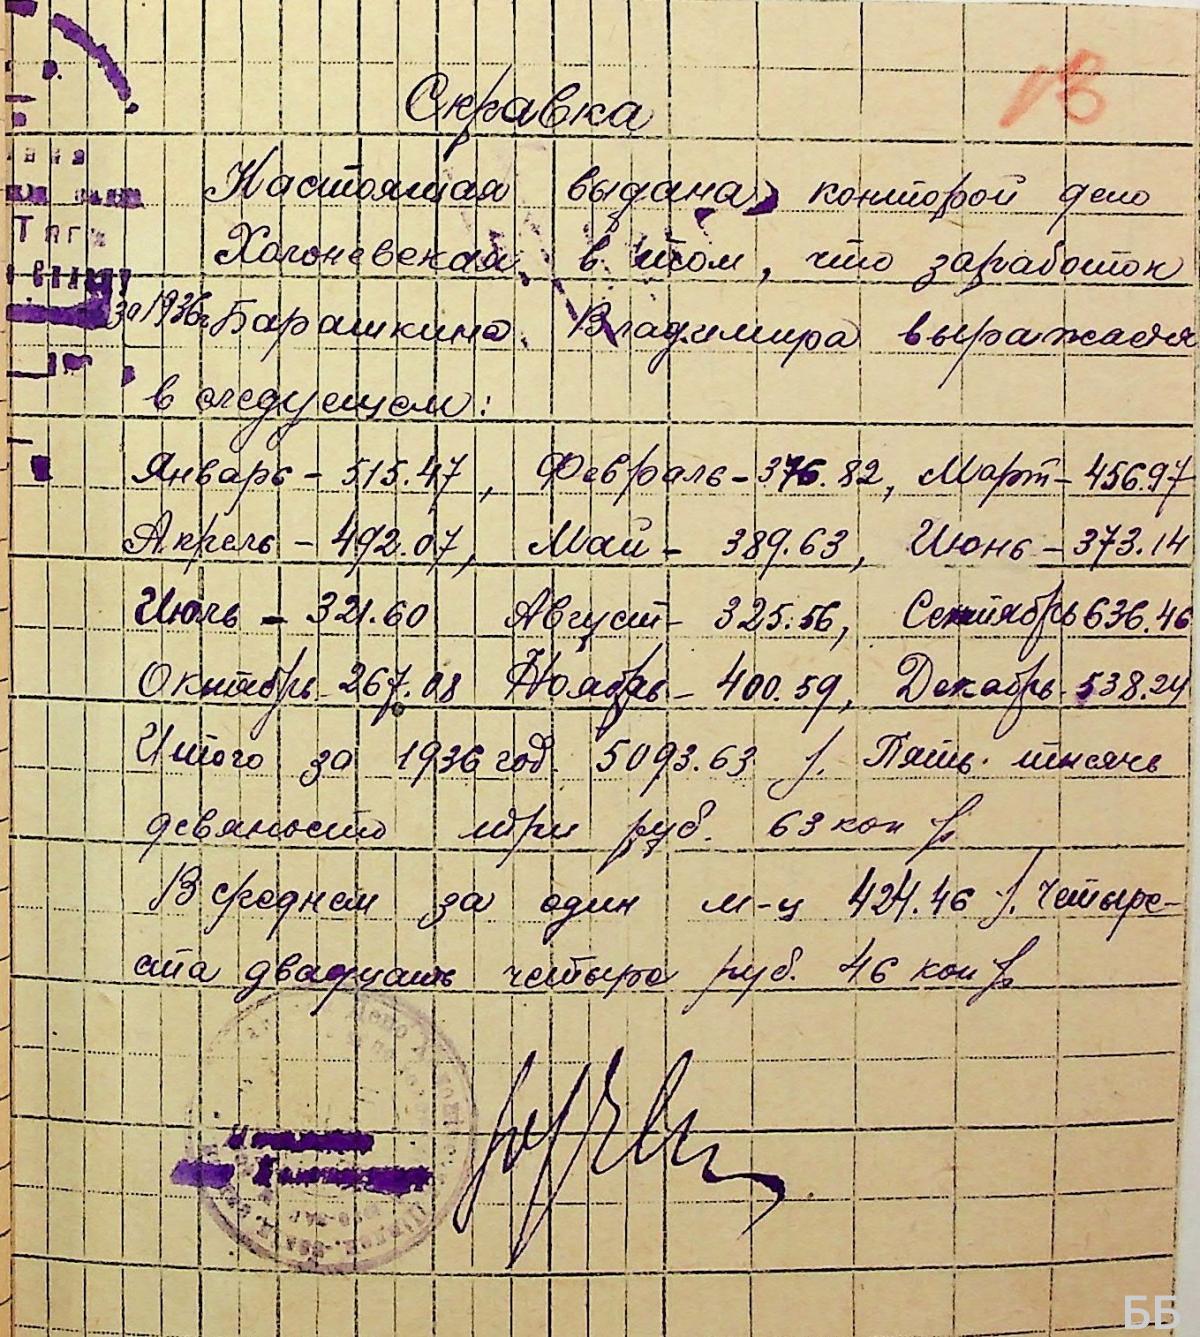 Справка
Настоящая выдана конторой депо
Холоневская в том, что заработок
за 1936г Барашкина Владимира выражается
в следующем:
Январь - 515.47, Февраль - 376.82, Март - 456.97
Апрель - 492.07, Май - 389.63, Июнь - 373.14
Июль - 321.60 Август - 325.56, Сентябрь 636.46
Октябрь - 267.08 Ноябрь - 400.59, Декабрь - 538.24
Итого за 1936 год 5093.63 р. Пять тысячь
девяносто три руб. 63 коп
В среднем за один м-ц 424.46 р. Четыре-
ста двадцать четыре руб. 46 коп
ББ